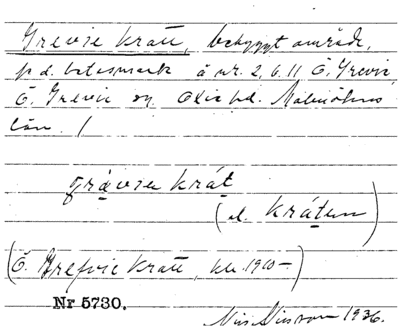 Grevie kratt, bebyggt område,
på d. betesmark å nr. 2, 6. 11 Ö. Grevie,
Ö. Grevie sn Oxie hd. Malmöhus
län. /
grä̱viə krát
(el. krátən)
(Ö. Grefvie Kratt, kb. 1910–)
Nr 5730.
Nils Nilsson 1936.